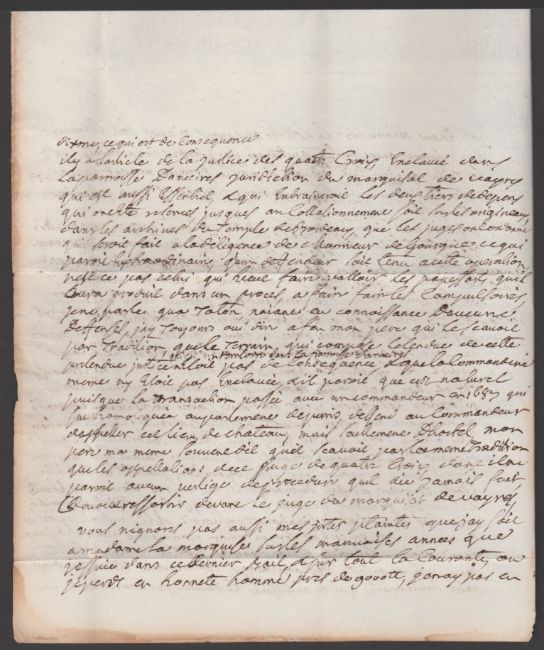 dixmes ce qui est de Consequence
il y a l'article de la justice des quatre Croix Enclavé dans
la parroisse Dancires jurisdiction du marquisat de vayres
qui est aussi Essentiel, & qui Entraineroit les deux tiers de depens
qui ont été reservés jusques au Collationnement fait sur les originaux
dans les archives du Temple de Bordeaux, que les juges ont ordonné
qui seroit fait a la diligence de Monsieur de Gourgue ce qui
paroit Extraordinaire qu'un deffendeur soit tenu a cette operation
n'est ce pas celui qui veut faire valloir les papes qu'il
produit dans un proces, a faire faire le Compulsoires
j'en parle qua Taton naiant eu connoissance D'aucune
deffense, j'ay Toujours oui dire a feu mon pere qui le scavoit
par Tradition que le Terrain, qui compose letendue de cette
pretendue justice n'etoit pas de Consequence & que la Commanderie
meme ny Etoit pas Enclavée, & il paroit que cest naturel
puisque la Transaction passée avec un commandeur en 168
homologuée au parlement de paris, deffend au Commandeur
d'appeller cet lieu de chateau, mais seulement D'hostel, mon
pere ma meme souvent dit quil scavoit par la meme Tradition
que les appellations de ce juge de quatre Croix, dont il ne
paroit aucun vestige de procedure quil aie jamais fait
devoit ressortir devant le juge du marquisat de vayres

vous n'ignorés pas aussi mes justes plaintes que j'ay fait
a madame la marquise sur les mauvaises années que
j'essuie dans ce dernier Bail, & sur tout la Courante, ou
je perds en honnete homme pres de 9000tt, je n'ay pas eu